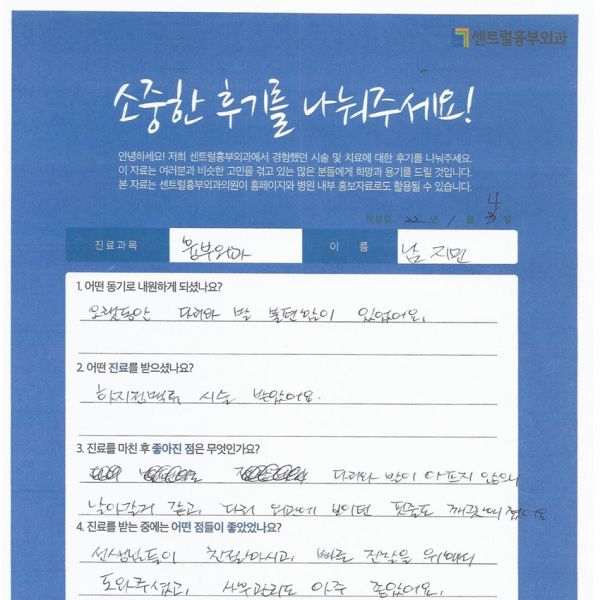 센트럴흉부외과
소중한 후기를 나눠주세요!
안녕하세요! 저희 센트럴흉부외과에서 경험했던 시술 및 치료에 대한 후기를 나눠주세요.
이 자료는 여러분과 비슷한 고민을 겪고 있는 많은 분들에게 희망과 용기를 드릴 것입니다.
본 자료는 센트럴흉부외과의원이 홈페이지와 병원 내부 홍보자료로도 활용될 수 있습니다.
작성일 22 년 1 월 4 일
진료과목 흉부외과 이 름 남지민
1. 어떤 동기로 내원하게 되셨나요?
오랫동안 다리와 발 불편함이 있었어요.
2. 어떤 진료를 받으셨나요?
하지정맥류 시술 받았어요.
3. 진료를 마친 후 좋아진 점은 무엇인가요?
다리와 발이 아프지 않으니
날아갈거 같고, 다리 외관에 보이던 핏줄도 깨끗해졌어요
4. 진료를 받는 중에는 어떤 점들이 좋았었나요?
선생님들이 친절하시고, 빠른 진찰을 위해서
도와주셨고, 사후관리도 아주 좋았어요.